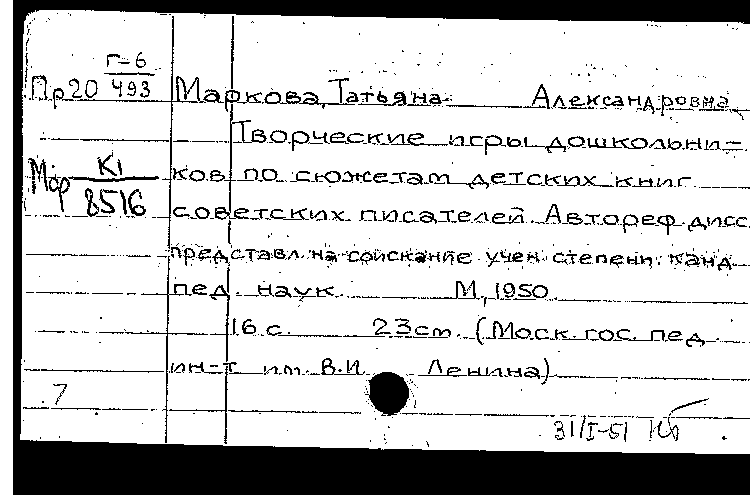 Г-6
Пр20 493 Маркова, Татьяна Александровна
Творческие игры дошкольни-
К1
8516
ков по сюжетам детских книг
советских писателей. Автореф. дисс.
представл. на соискание учен. степени. канд
пед. наук М., 1950.
16 с. 23 cm. (Моск. гос. пед.
ин-т им. В.И. Ленина)
7
31/I-51